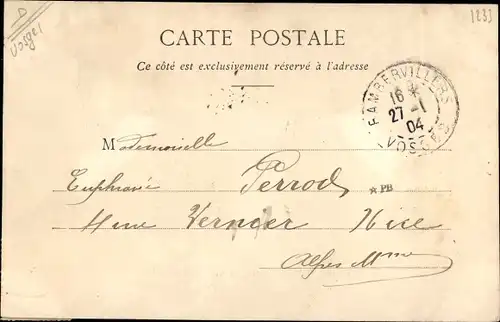 D
Vosges
1233
CARTE POSTALE
Ce côté est exclusivement réservé à l'adresse
RAMBERVILLERS
16
27 -1
04
VOSGES
Mademoiselle
Euphrasie Perrod
★PB
Rue Vernier Nice
Alpes Mmes